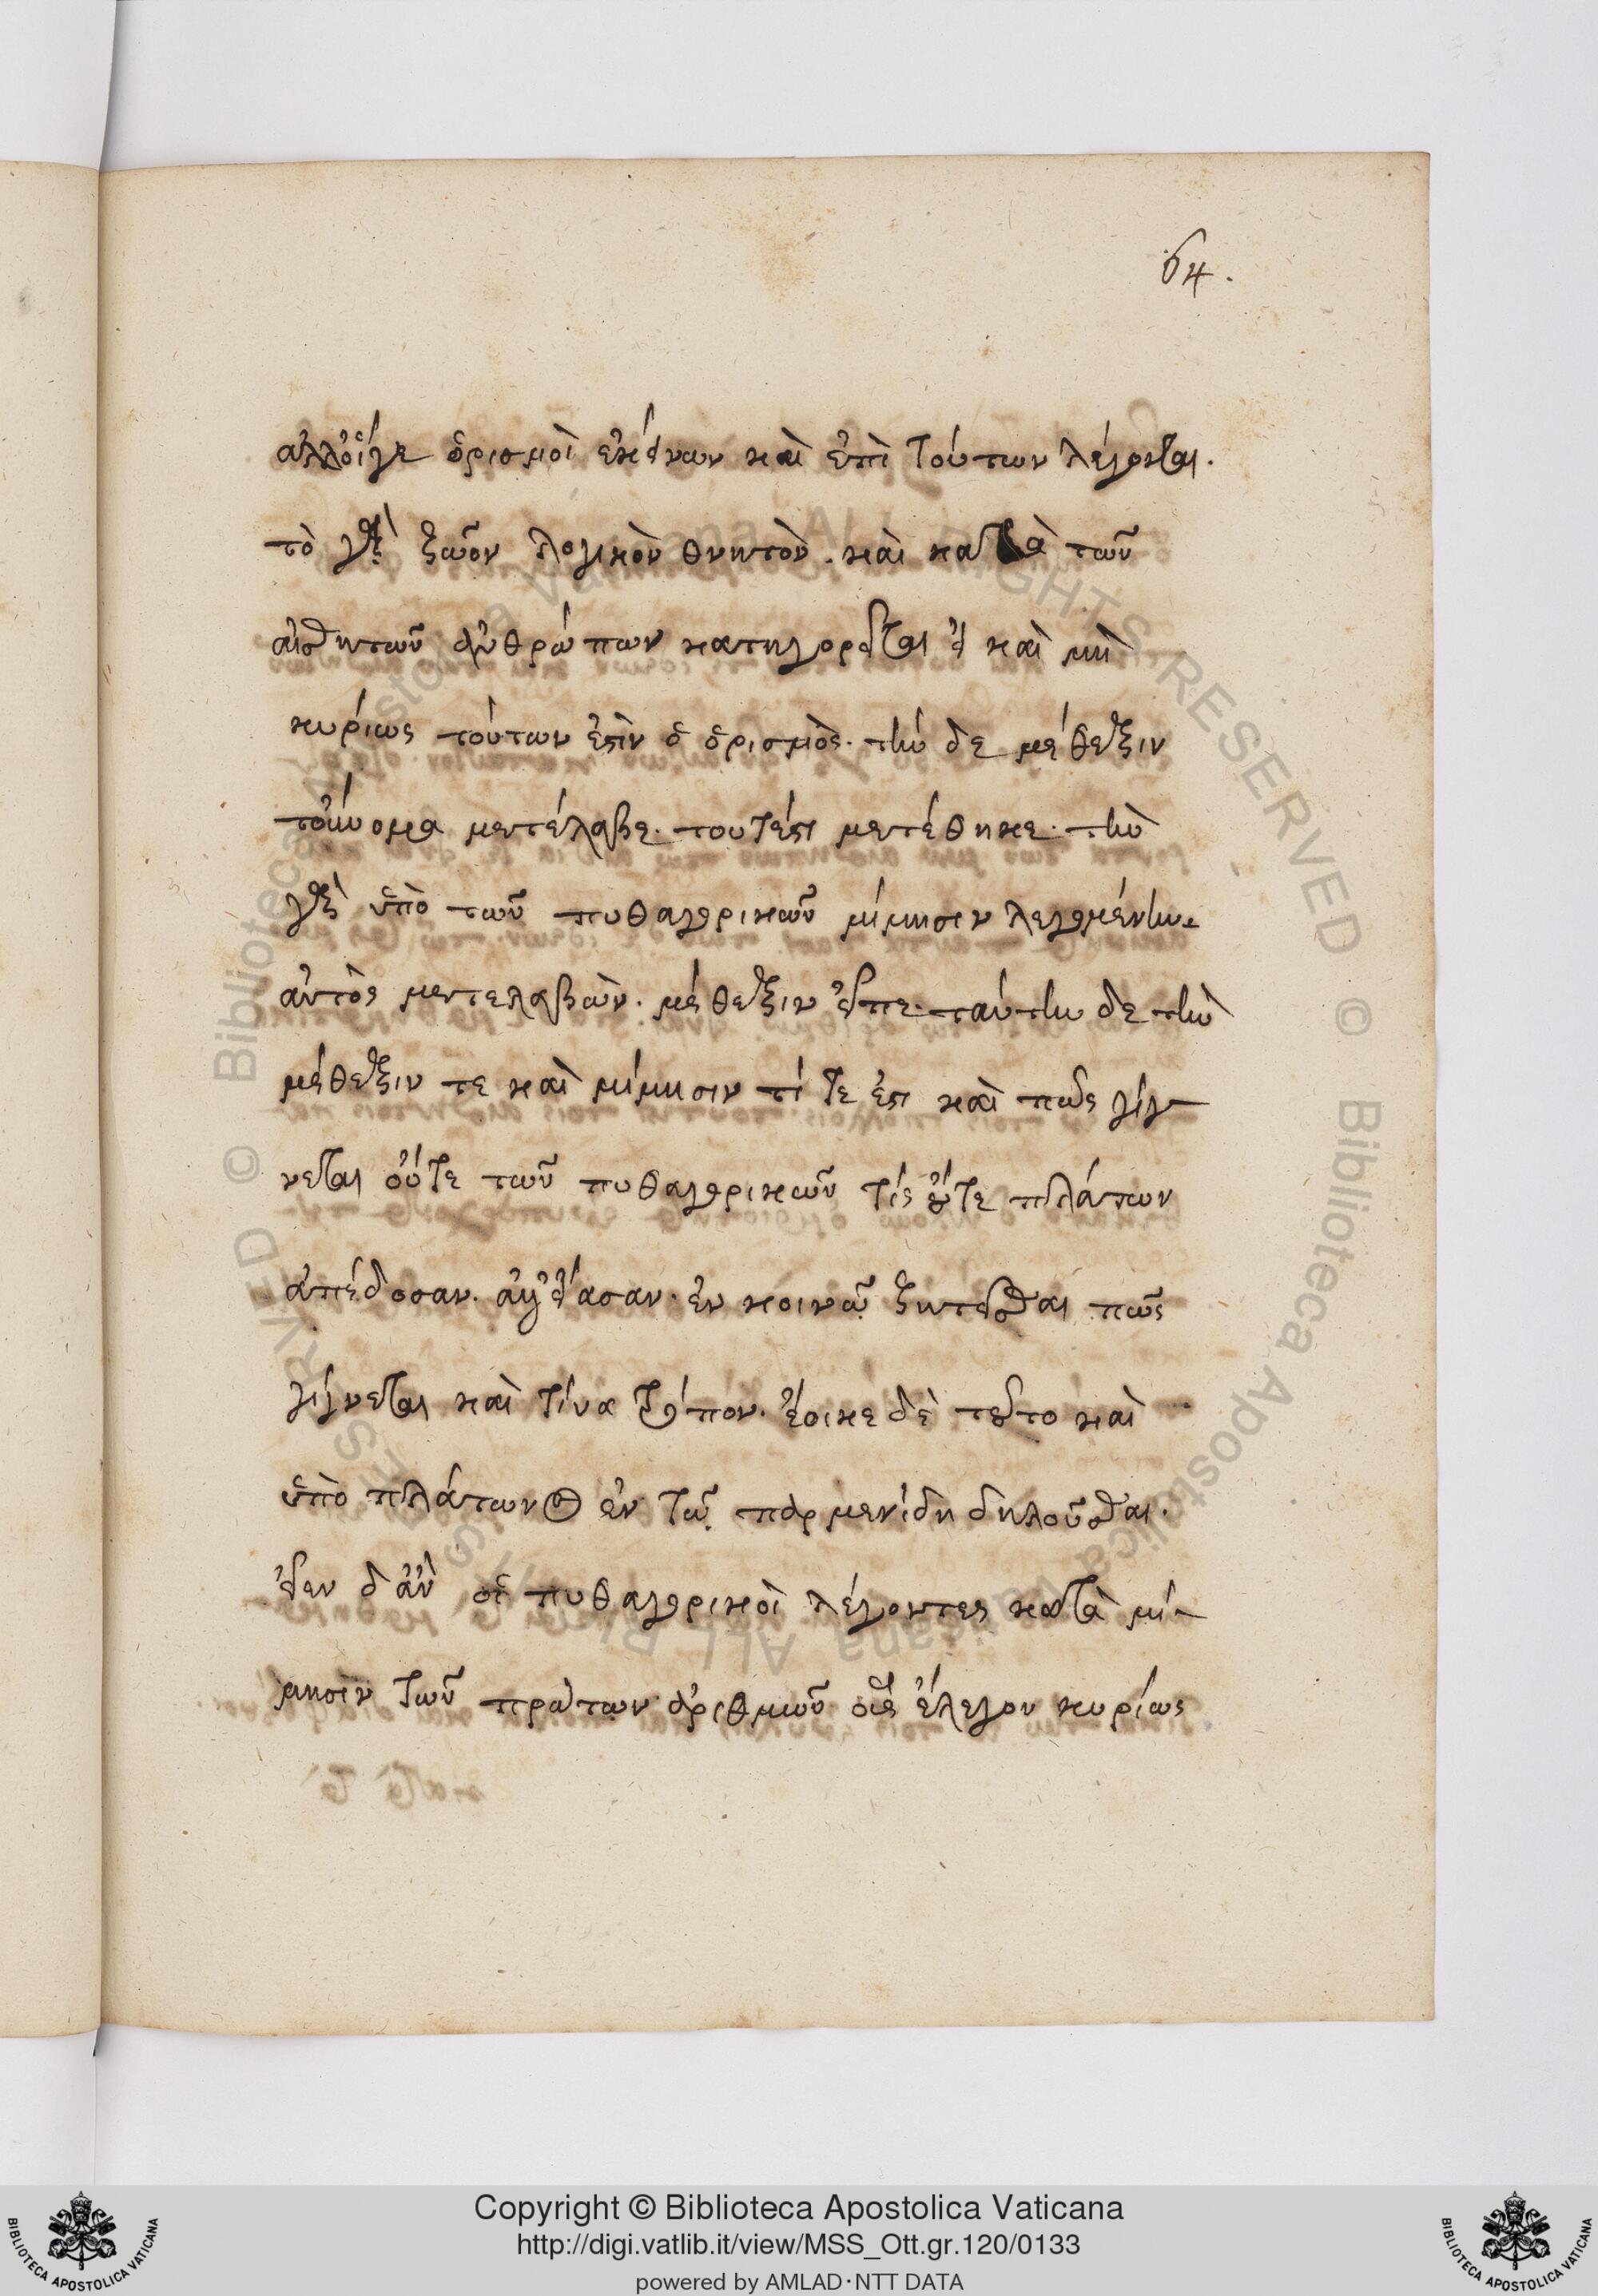 64.
ἀλλ' οἵγε ὁρισμοὶ ἐκείνων καὶ ἐπὶ τούτων λέγονται.
τὸ γὰρ ζῶον λογικὸν θνητὸν. καὶ κατὰ τῶν
αἰσθητῶν ἀνθρώπων κατηγορεῖται εἰ καὶ μὴ
κυρίως τούτων ἐστὶν ὁ ὁρισμὸς. τὴν δε μέθεξιν
τοὔνομα μετέλαβε. τουτέστι μετέθηκε. τὴν
γὰρ ὑπὸ τῶν πυθαγορικῶν μίμησιν λεγομένην.
αὐτὸς μεταλαβὼν. μέθεξιν εἶπε. ταύτην δε τὴν
μέθεξιν τε καὶ μίμησιν τί τε ἐστι καὶ πῶς γίγ-
νεται οὔτε τῶν πυθαγορικῶν τίς οὔτε πλάτων
ἀπέδοσαν. ἀλλ' εἴασαν. ἐν κοινῷ ζητεῖσθαι πῶς
γίγνεται καὶ τίνα τρόπον. ἔοικε δὲ τοῦτο καὶ
ὑπὸ πλάτωνος ἐν τῷ παρμενίδη δηλοῦσθαι.
εἶεν δ' ἂν οἱ πυθαγορικοὶ λέγοντες κατὰ μί-
μησιν τῶν πρώτων ἀριθμῶν οὓς ἔλεγον κυρίως
Copyright © Biblioteca Apostolica Vaticana
http://digi.vatlib.it/view/MSS_Ott.gr.120/0133
powered by AMLAD·NTT DATA
BIBLIOTECA APOSTOLICA VATICANA
BIBLIOTECA APOSTOLICA VATICANA